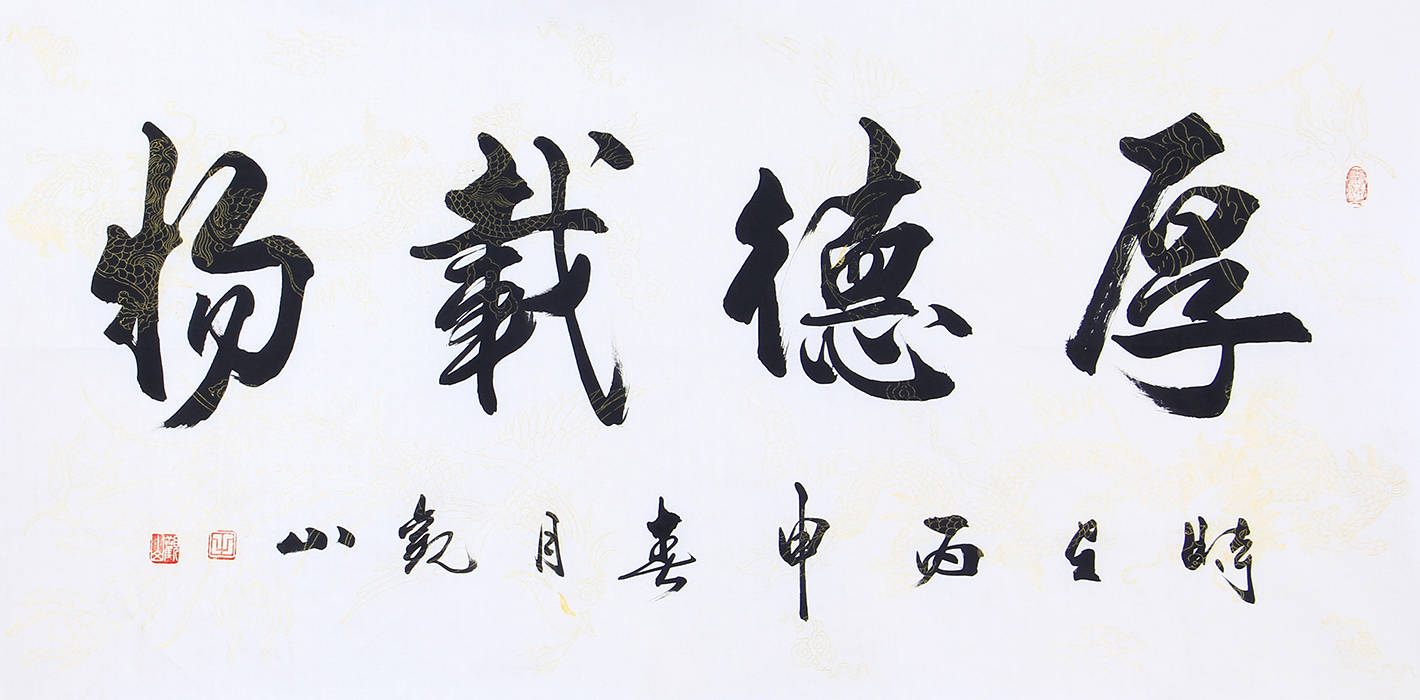 厚德載物
時在丙申春月觀山